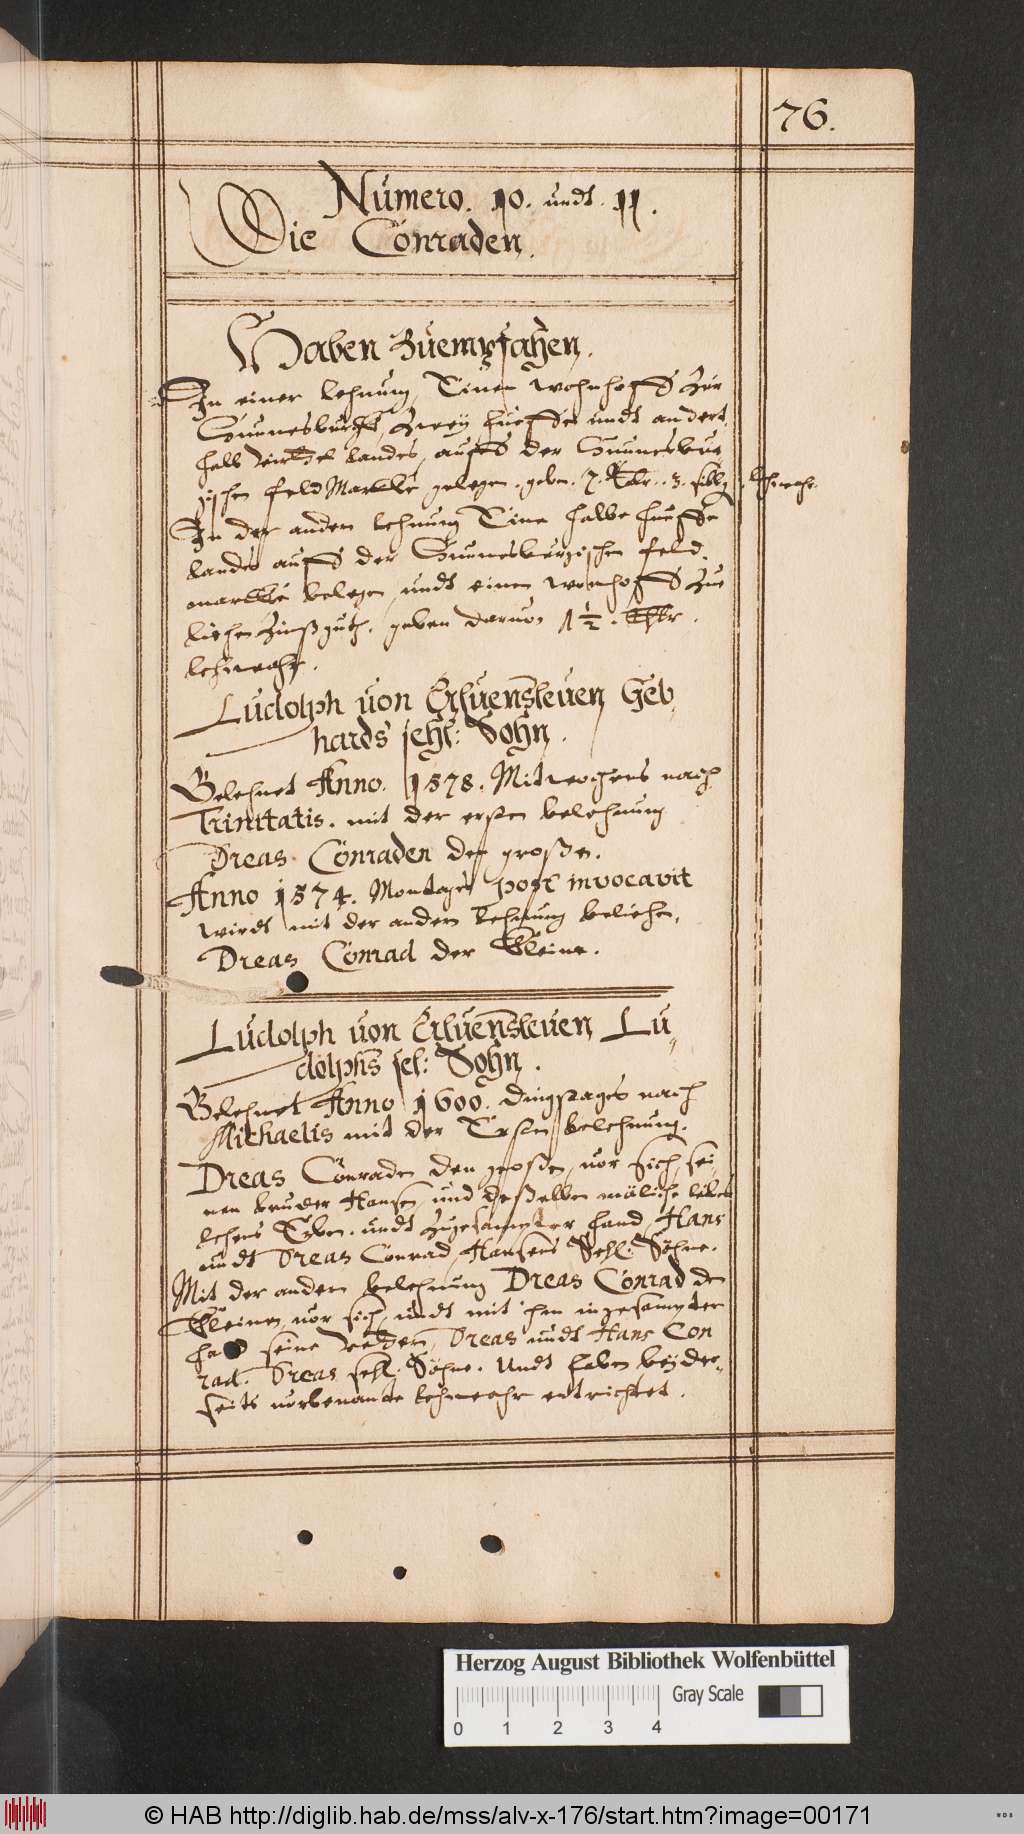 76.
Numero. 10. undt. 11.
Die Conraden.
Haben Zuempfahen.
In einer lehnung, Einen wohnhoff Zur
Sunnesburgk, Zweÿ hueffe undt andert
halb viertel landes, auff der Sunnesbur,
gischen feld Marckte gelegen. geben. 7. thlr. 3. lehnwahr.
In der andern lehnung Eine halbe hueffe
landes auff der Sunnesburgischen feld,
marckte belegen, undt einen wonhoff Zue
Zinßguth, geben daruon 1 ½. thlr.
lehnwahr.
Ludolph von Aluensleuen Geb,
hards sehl: Sohn.
Belehnet Anno. 1578. Mitwochens nach
Trinitatis. mit der ersten belehnung
Dreas Conraden den großen.
Anno 1574. Montages post invocavit
wirdt mit der andern lehnung beliehen,
Dreas Conrad der Kleine.
Ludolph von Aluensleuen Lu,
dolphs sel: Sohn.
Belehnet Anno 1600. dingstages nach
Michaelis mit der Ersten belehnung.
Dreas Conraden den großen, vor sich, sei,
nen bruder Hansen, und deßelben mänliche leibes
lehens Erben. undt Zugesampter hand Hans
undt Dreas Conrad, Hansens Sehl. Söhne.
Mit der andern belehnung Dreas Conrad den
Kleinen, vor sich, undt mit ihm in gesampter
hand seine Vedtern, Dreas undt Hans Con
rad. Dreas sehl. Söhne. Undt haben beÿder,
seits vorbenante lehnwahr entrichtet.
Herzog August Bibliothek Wolfenbüttel
Gray Scale
0 1 2 3 4
© HAB http://diglib.hab.de/mss/alv-x-176/start.htm?image=00171